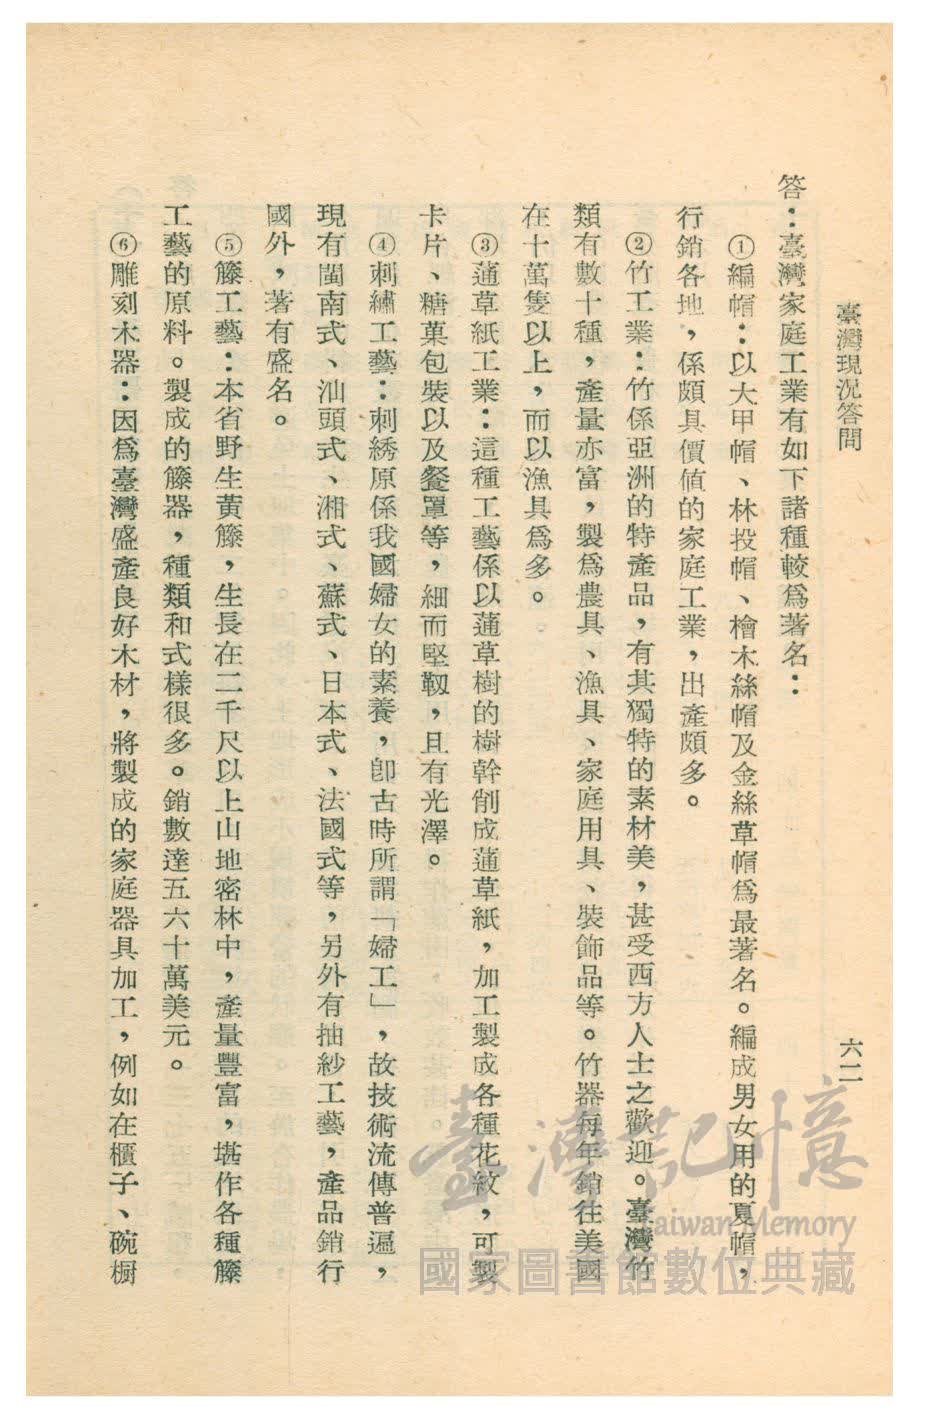 臺灣現況答問
六二
答：臺灣家庭工業有如下諸種較爲著名：
①編帽：以大甲帽、林投帽、檜木絲帽及金絲草帽爲最著名。編成男女用的夏帽，
行銷各地，係頗具價値的家庭工業，出產頗多。
②竹工業：竹係亞洲的特產品，有其獨特的素材美，甚受西方人士之歡迎。臺灣竹
類有數十種，產量亦富，製爲農具、漁具、家庭用具、裝飾品等。竹器每年銷往美國
在十萬隻以上，而以漁具爲多。
③蓪草紙工業：這種工藝係以蓪草樹的樹幹削成蓪草紙，加工製成各種花紋，可製
卡片、糖菓包裝以及餐罩等，細而堅靱，且有光澤。
④刺繡工藝：刺綉原係我國婦女的素養，卽古時所謂「婦工」，故技術流傳普遍，
現有閩南式、汕頭式、湘式、蘇式、日本式、法國式等，另外有抽紗工藝，產品銷行
國外，著有盛名。
⑤籐工藝：本省野生黃籐，生長在二千尺以上山地密林中，產量豐富，堪作各種籐
工藝的原料。製成的籐器，種類和式樣很多。銷數達五六十萬美元。
⑥雕刻木器：因爲臺灣盛產良好木材，將製成的家庭器具加工，例如在櫃子、碗橱
臺灣記憶
Taiwan Memory
國家圖書館數位典藏